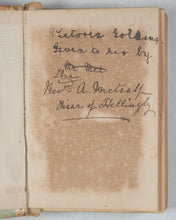 Victoria Golding.
Given to her by.
Mr Met
the
Revd. A. Metcalf
Vicar of Hellingly